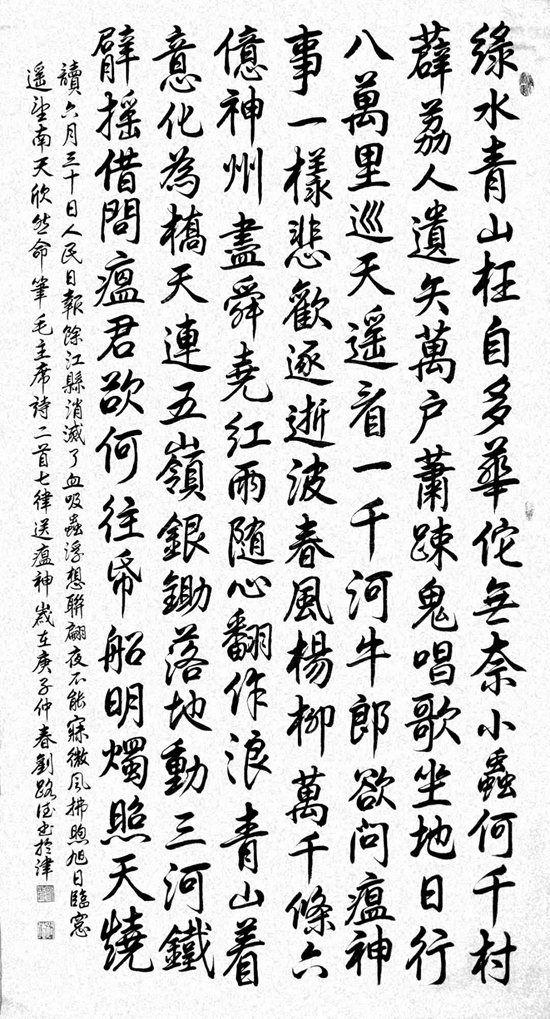 綠水青山枉自多華佗無奈小蟲何千村
薜荔人遺矢萬户蕭踈鬼唱歌坐地日行
八萬里巡天遥看一千河牛郎欲问瘟神
事一樣悲歡逐逝波春風楊柳萬千條六
億神州盡舜堯红雨随心翻作浪青山着
意化為橋天連五嶺銀鋤落地動三河鐵
臂摇借問瘟君欲何往帋船明燭照天燒
讀六月三十日人民日報餘江縣消滅了血吸蟲浮想聯翩夜不能寐微风拂煦旭日臨窓
遥望南天欣然命筆毛主席詩二首七律送瘟神歲在庚子仲春劉路书於津